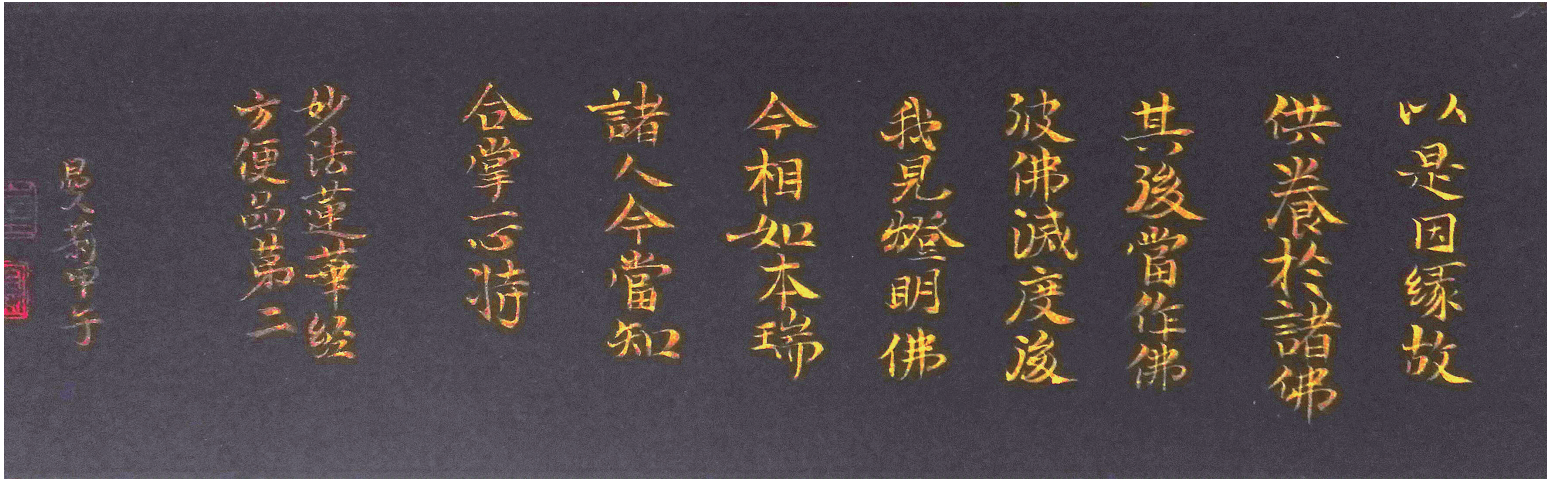 以是因緣故
供養於諸佛
其後當作佛
彼佛滅度後
我見燈明佛
今相如本瑞
諸人今當知
合掌一心待
妙法蓮華経
方便品第二
甲午